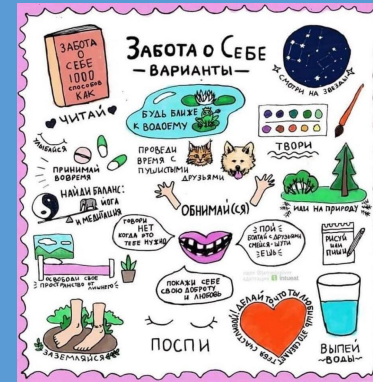 ЗАБОТА О СЕБЕ
— ВАРИАНТЫ —
ЗАБОТА
О
СЕБЕ
1000
СПОСОБОВ
КАК
ЧИТАЙ
СМОТРИ НА ЗВЕЗДЫ
БУДЬ БЛИЖЕ
К ВОДОЕМУ
УЛЫБАЙСЯ
ПРИНИМАЙ
ВОВРЕМЯ
ПРОВЕДИ
ВРЕМЯ С
ПУШИСТЫМИ
ДРУЗЬЯМИ
ТВОРИ
НАЙДИ БАЛАНС:
ЙОГА
И МЕДИТАЦИЯ
ОБНИМАЙ(СЯ)
ИДИ НА ПРИРОДУ
ГОВОРИ
НЕТ
КОГДА ЭТО
ТЕБЕ НУЖНО
ПОЙ
БОЛТАЙ С ДРУЗЬЯМИ
СМЕЙСЯ - ШУТИ
ЕШЬ
РИСУЙ
ИЛИ
ПИШИ
ОСВОБОДИ СВОЕ
ПРОСТРАНСТВО ОТ
ЛИШНЕГО
ПОКАЖИ СЕБЕ
СВОЮ ДОБРОТУ
И ЛЮБОВЬ
ДЕЛАЙ ТО ЧТО ТЫ ЛЮБИШЬ ЭТО СДЕЛАЕТ ТЕБЯ СЧАСТЛИВОЙ
ЗАЗЕМЛЯЙСЯ
ПОСПИ
ВЫПЕЙ
~ВОДЫ~